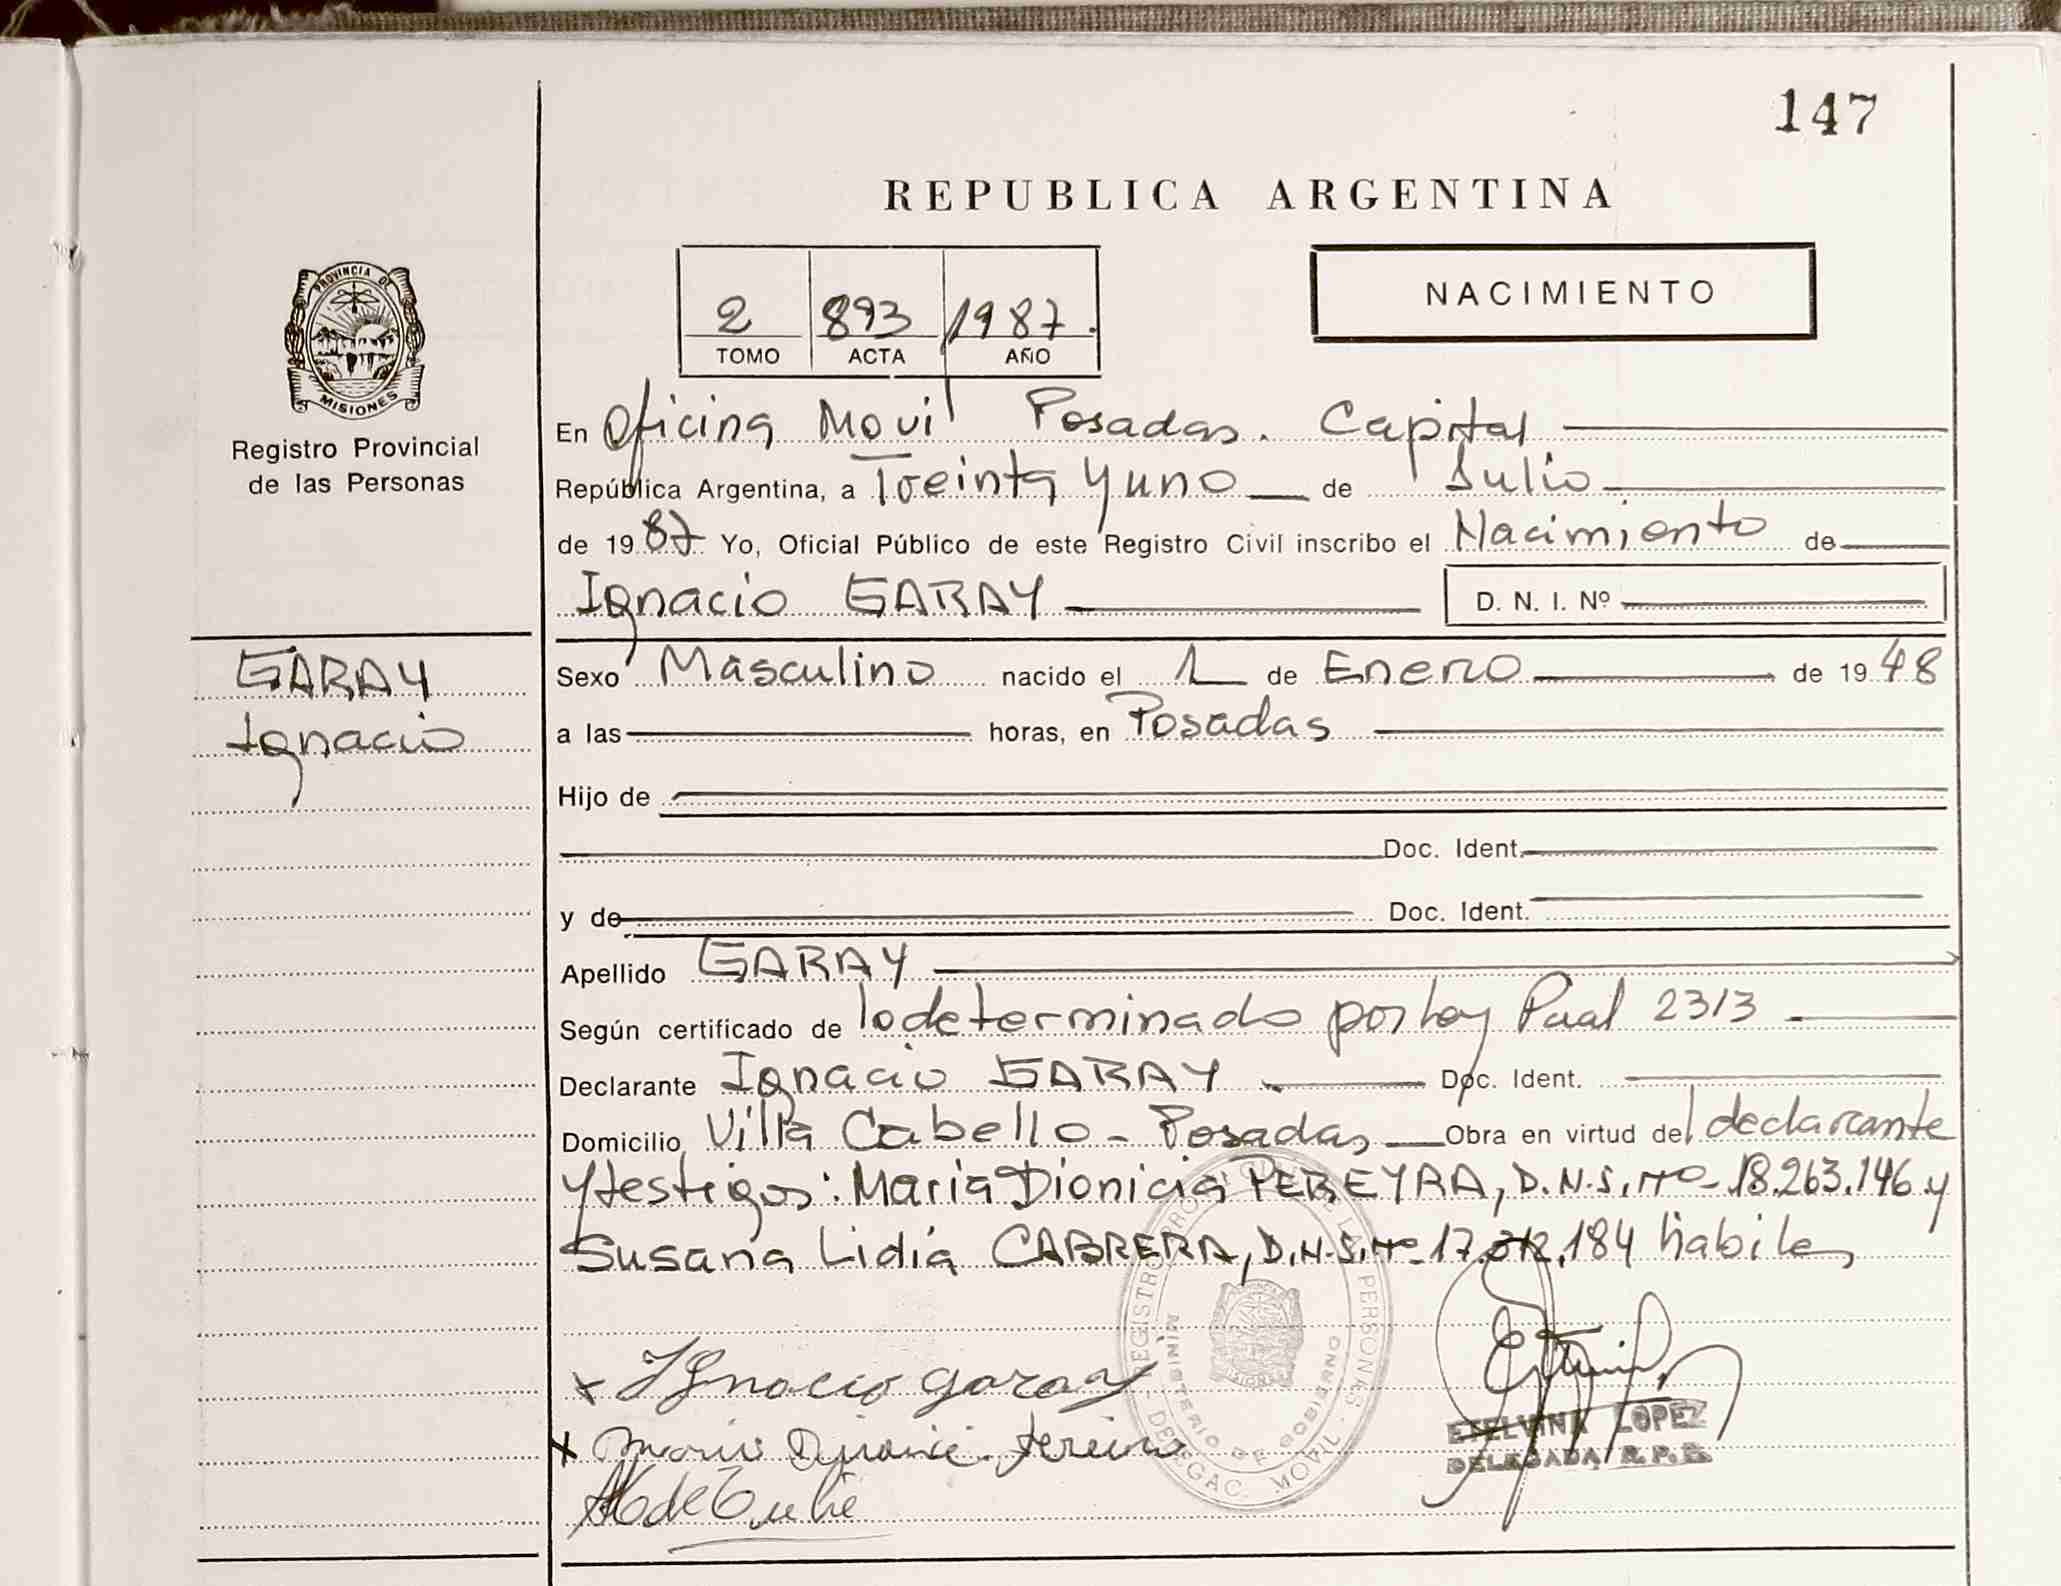 147
REPUBLICA ARGENTINA
PROVINCIA DE
MISIONES
Registro Provincial
de las Personas
2 893 1987
TOMO ACTA AÑO
NACIMIENTO
En Oficina Movil Posadas. Capital
República Argentina, a Treinta y uno de Julio
de 1987 Yo, Oficial Público de este Registro Civil inscribo el Nacimiento de
Ignacio GARAY D. N. I. Nº
GARAY
Ignacio
Sexo Masculino nacido el 1 de Enero de 1948
a las horas, en Posadas
Hijo de
Doc. Ident.
y de Doc. Ident.
Apellido GARAY
Según certificado de lo determinado por Ley 2313
Declarante Ignacio GARAY Doc. Ident.
Domicilio Villa Cabello - Posadas Obra en virtud del declarante
y testigos: Maria Dionicia PEREYRA, D.N.I. Nº 18.263.146 y
Susana Lidia CABRERA, D.N.I. Nº 17. .184 habiles
x IGnacio garay
x
ETELVINA LOPEZ
DELEGADA R.P.P.
REGISTRO PROVINCIAL DE LAS PERSONAS
MINISTERIO DE GOBIERNO
DELEGAC. MOVIL